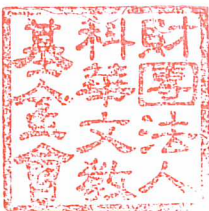 財團法人
科華文教
基金會